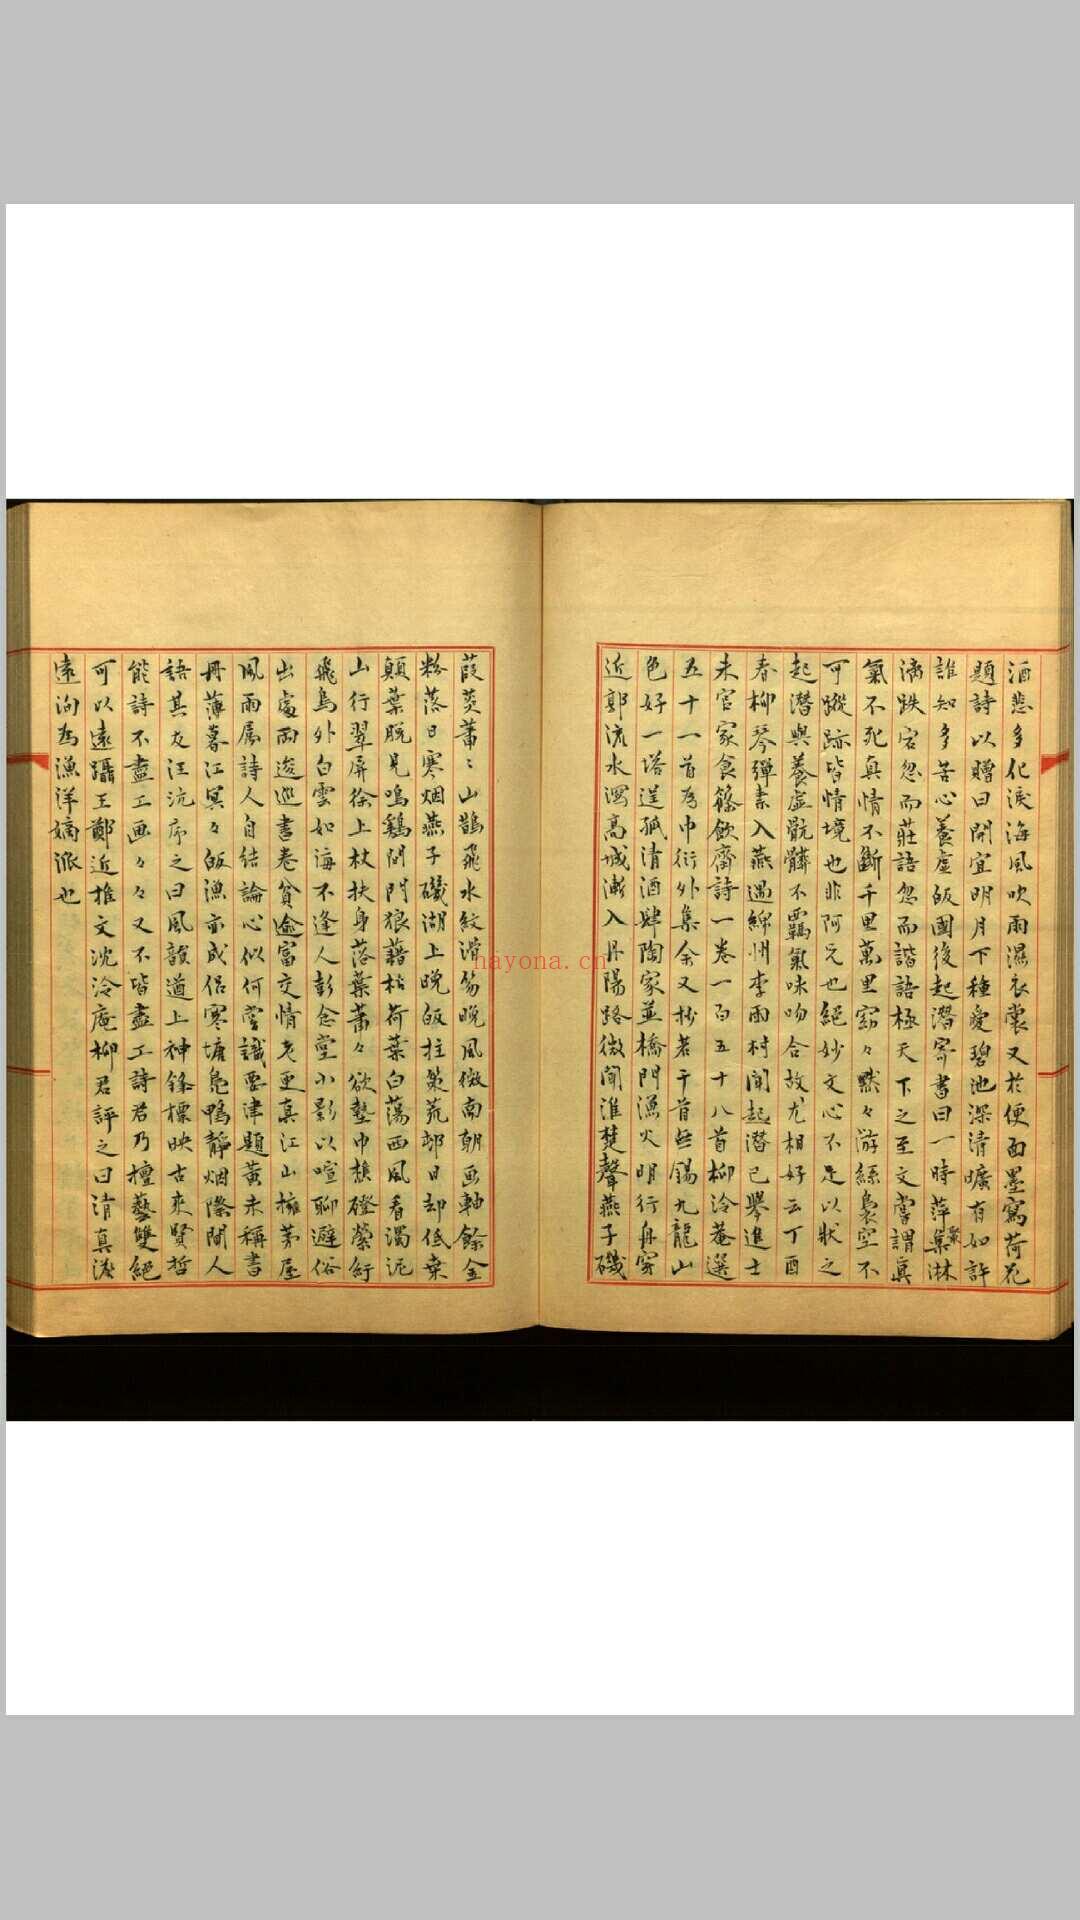 酒悲多化淚海風吹雨濕衣裳又於便面墨寫荷花
題詩以贈曰開宜明月下種愛碧池深清曠有如許
誰知多苦心養虛皈國後起潛寄書曰一時萍聚淋
漓跌宕忽而莊語忽而諧語極天下之至文嘗謂真
氣不死真情不斷千里萬里窈々默々游絲裊空不
可蹤跡皆情境也非阿兄也絕妙文心不足以狀之
起潛與養虛骯髒不羈氣味吻合故尤相好云丁酉
春柳琴彈素入燕遇綿州李雨村聞起潛已舉進士
未官家食篠飲齋詩一卷一百五十八首柳泠菴選
五十一首為巾衍外集余又抄若干首無錫九龍山
色好一塔逞孤清酒肆陶家並橋門漁火明行舟穿
近郭流水瀉高城漸入丹陽路微聞淮楚聲燕子磯
葭菼蕭〻山鵲飛水紋滑笏晚風微南朝畫軸餘金
粉落日寒烟燕子磯湖上晚皈拄策荒邨日却低棄
顛葉脫見鳴鷄閉門狼藉枯荷葉白蕩西風看濁泥
山行翠屏徐上杖扶身落葉蕭々欲墊巾樵磴縈紆
飛鳥外白雲如海不逢人彭念堂小影以喧聊避俗
出處兩逡巡書卷貧逾富交情老更真江山擁茅屋
風雨屬詩人自結論心似何堂識要津題黃未稱書
冊薄暮江冥々皈漁亦成侶寒塘鳧鴨靜烟際聞人
語其友汪沆序之曰風韻道上神鋒標映古來賢哲
能詩不盡工画々々又不皆盡工詩君乃擅藝雙絕
可以遠躡王鄭近推文沈泠庵柳君評之曰清真淡
遠洵為漁洋嫡派也
hayona.cn